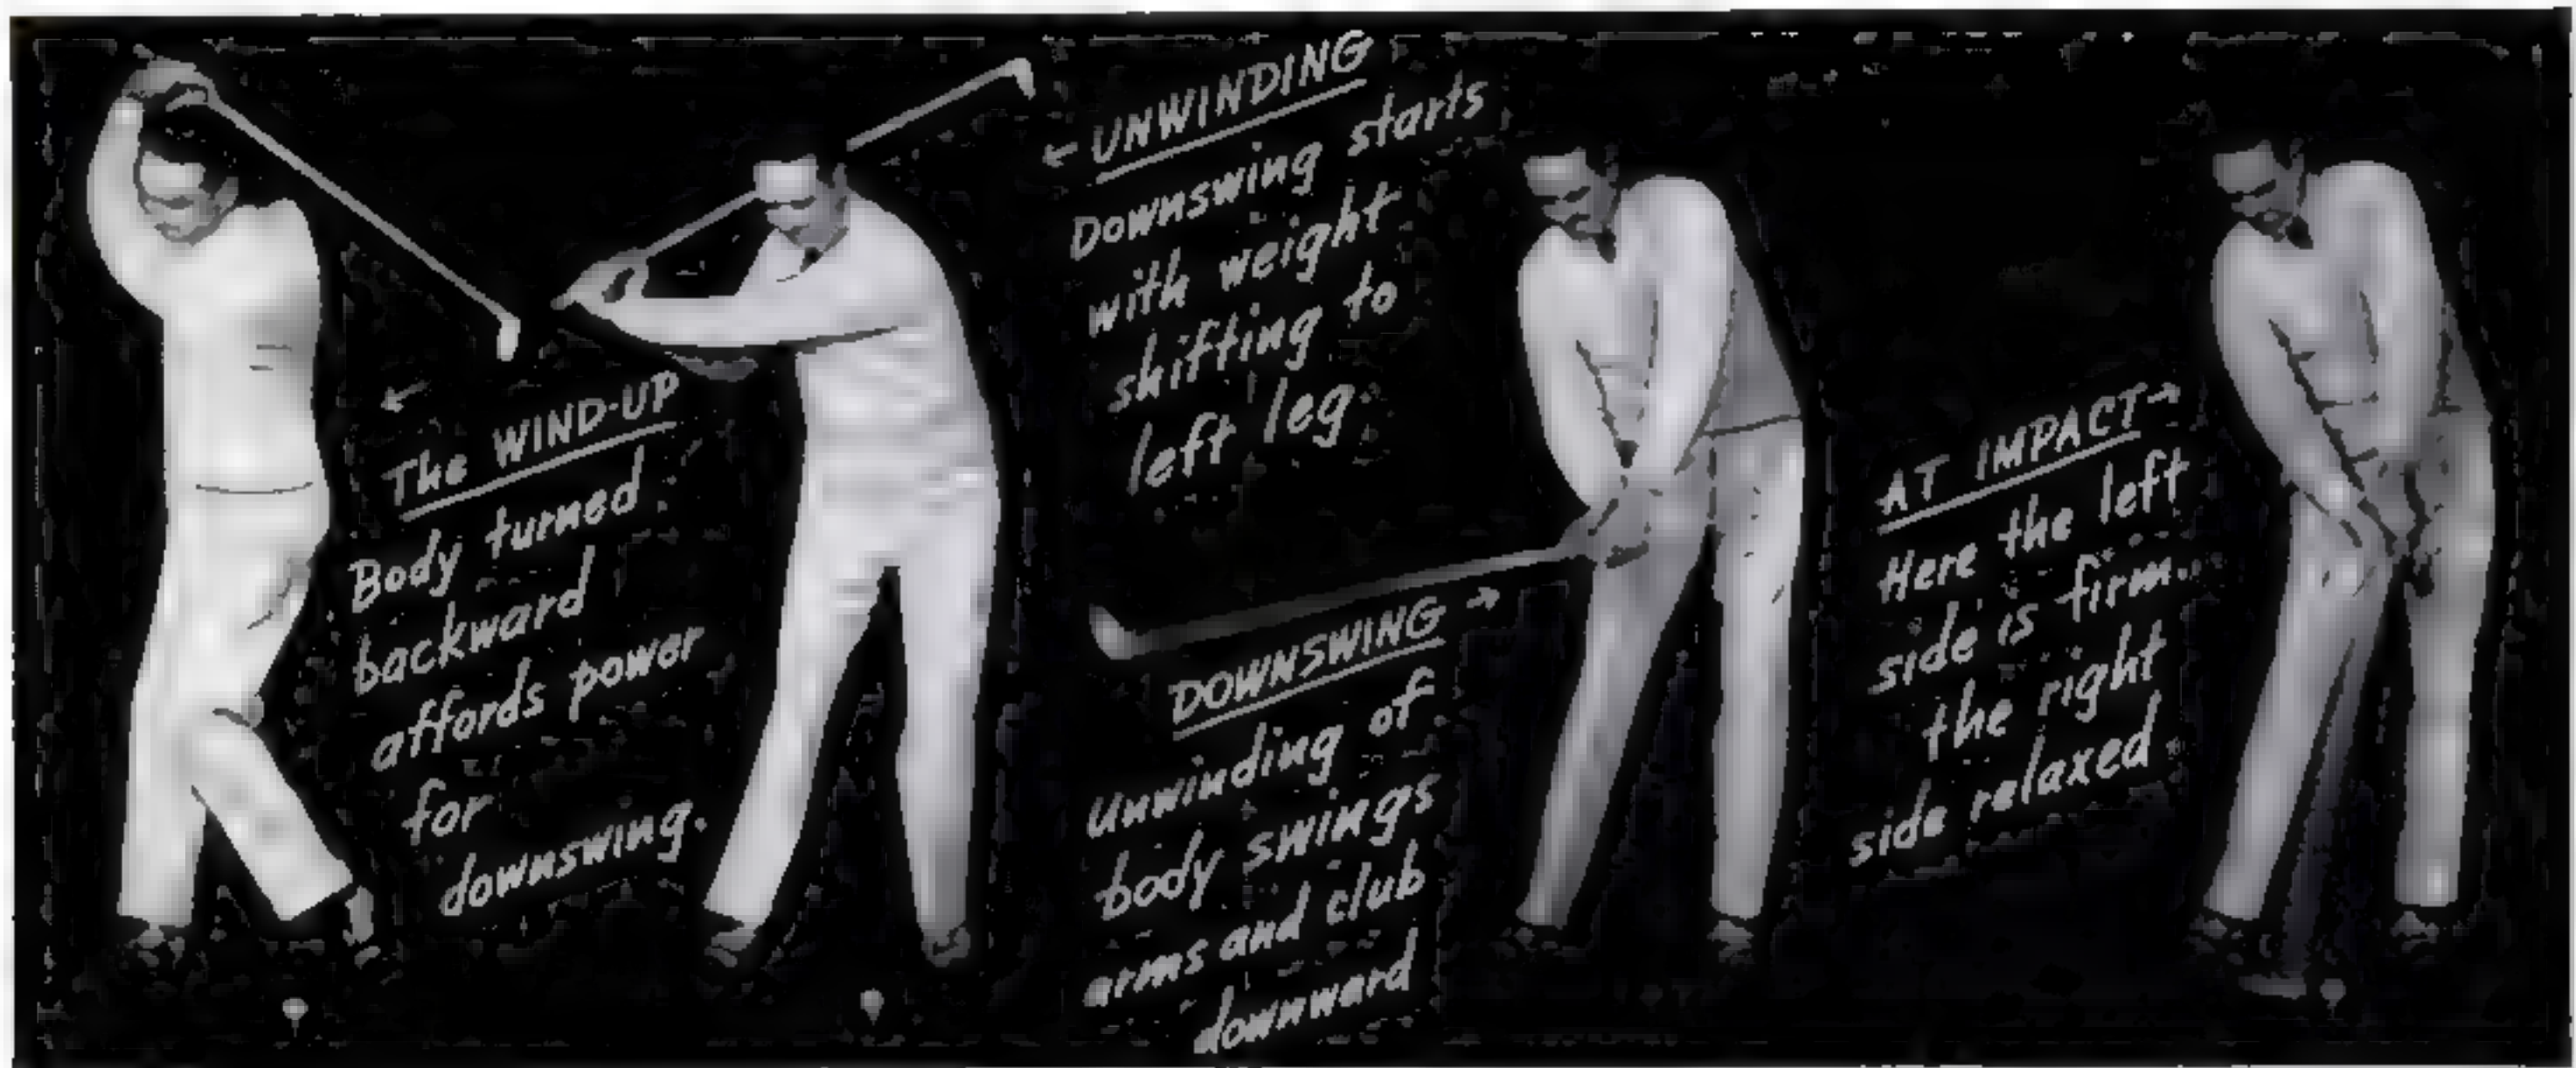 The WIND-UP
Body turned
backward
affords power
for
downswing.
← UNWINDING
Downswing starts
with weight
shifting to
left leg.
DOWNSWING →
Unwinding of
body swings
arms and club
downward
AT IMPACT→
Here the left
side is firm.
the right
side relaxed